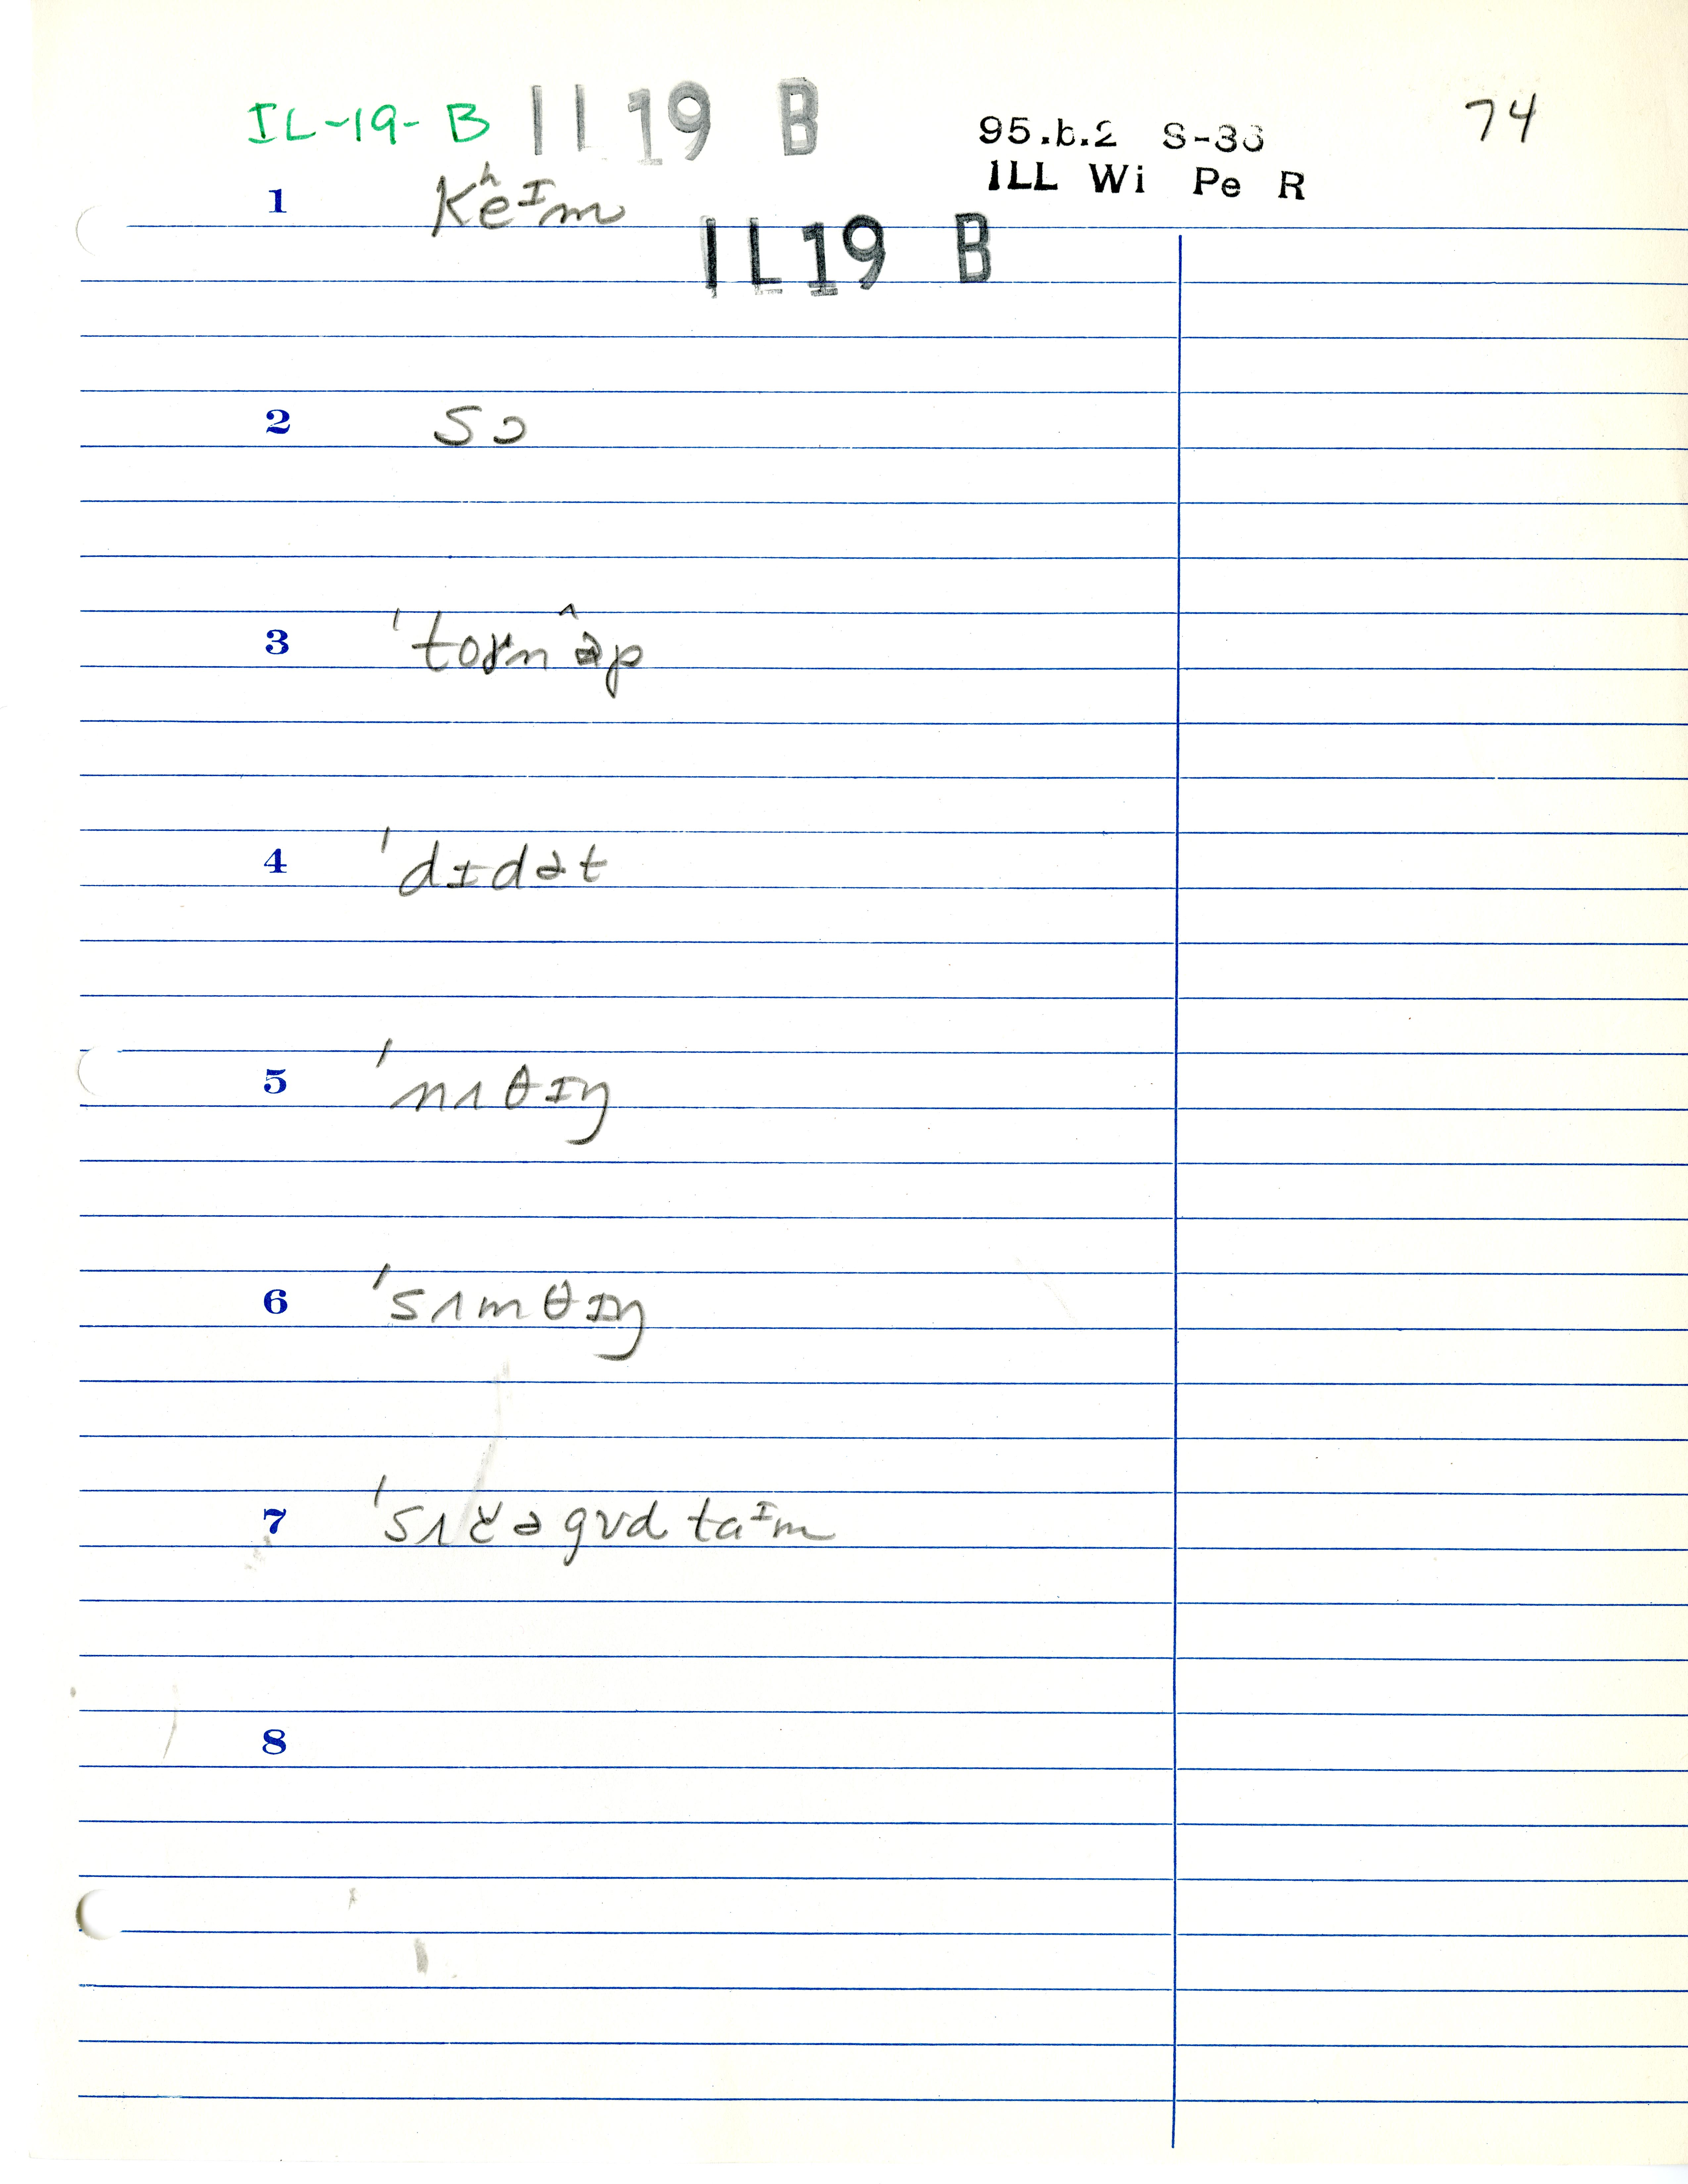 IL-19-B IL 19 B 95.b.2 S-36 74
ILL Wi Pe R
1 kʰeᴵm
IL 19 B
2 sɔ
3 'tornˆəp
4 'dɪdət
5 'nʌθɪŋ
6 'sʌmθɪŋ
7 'sʌčə gʊd taᴵm
8